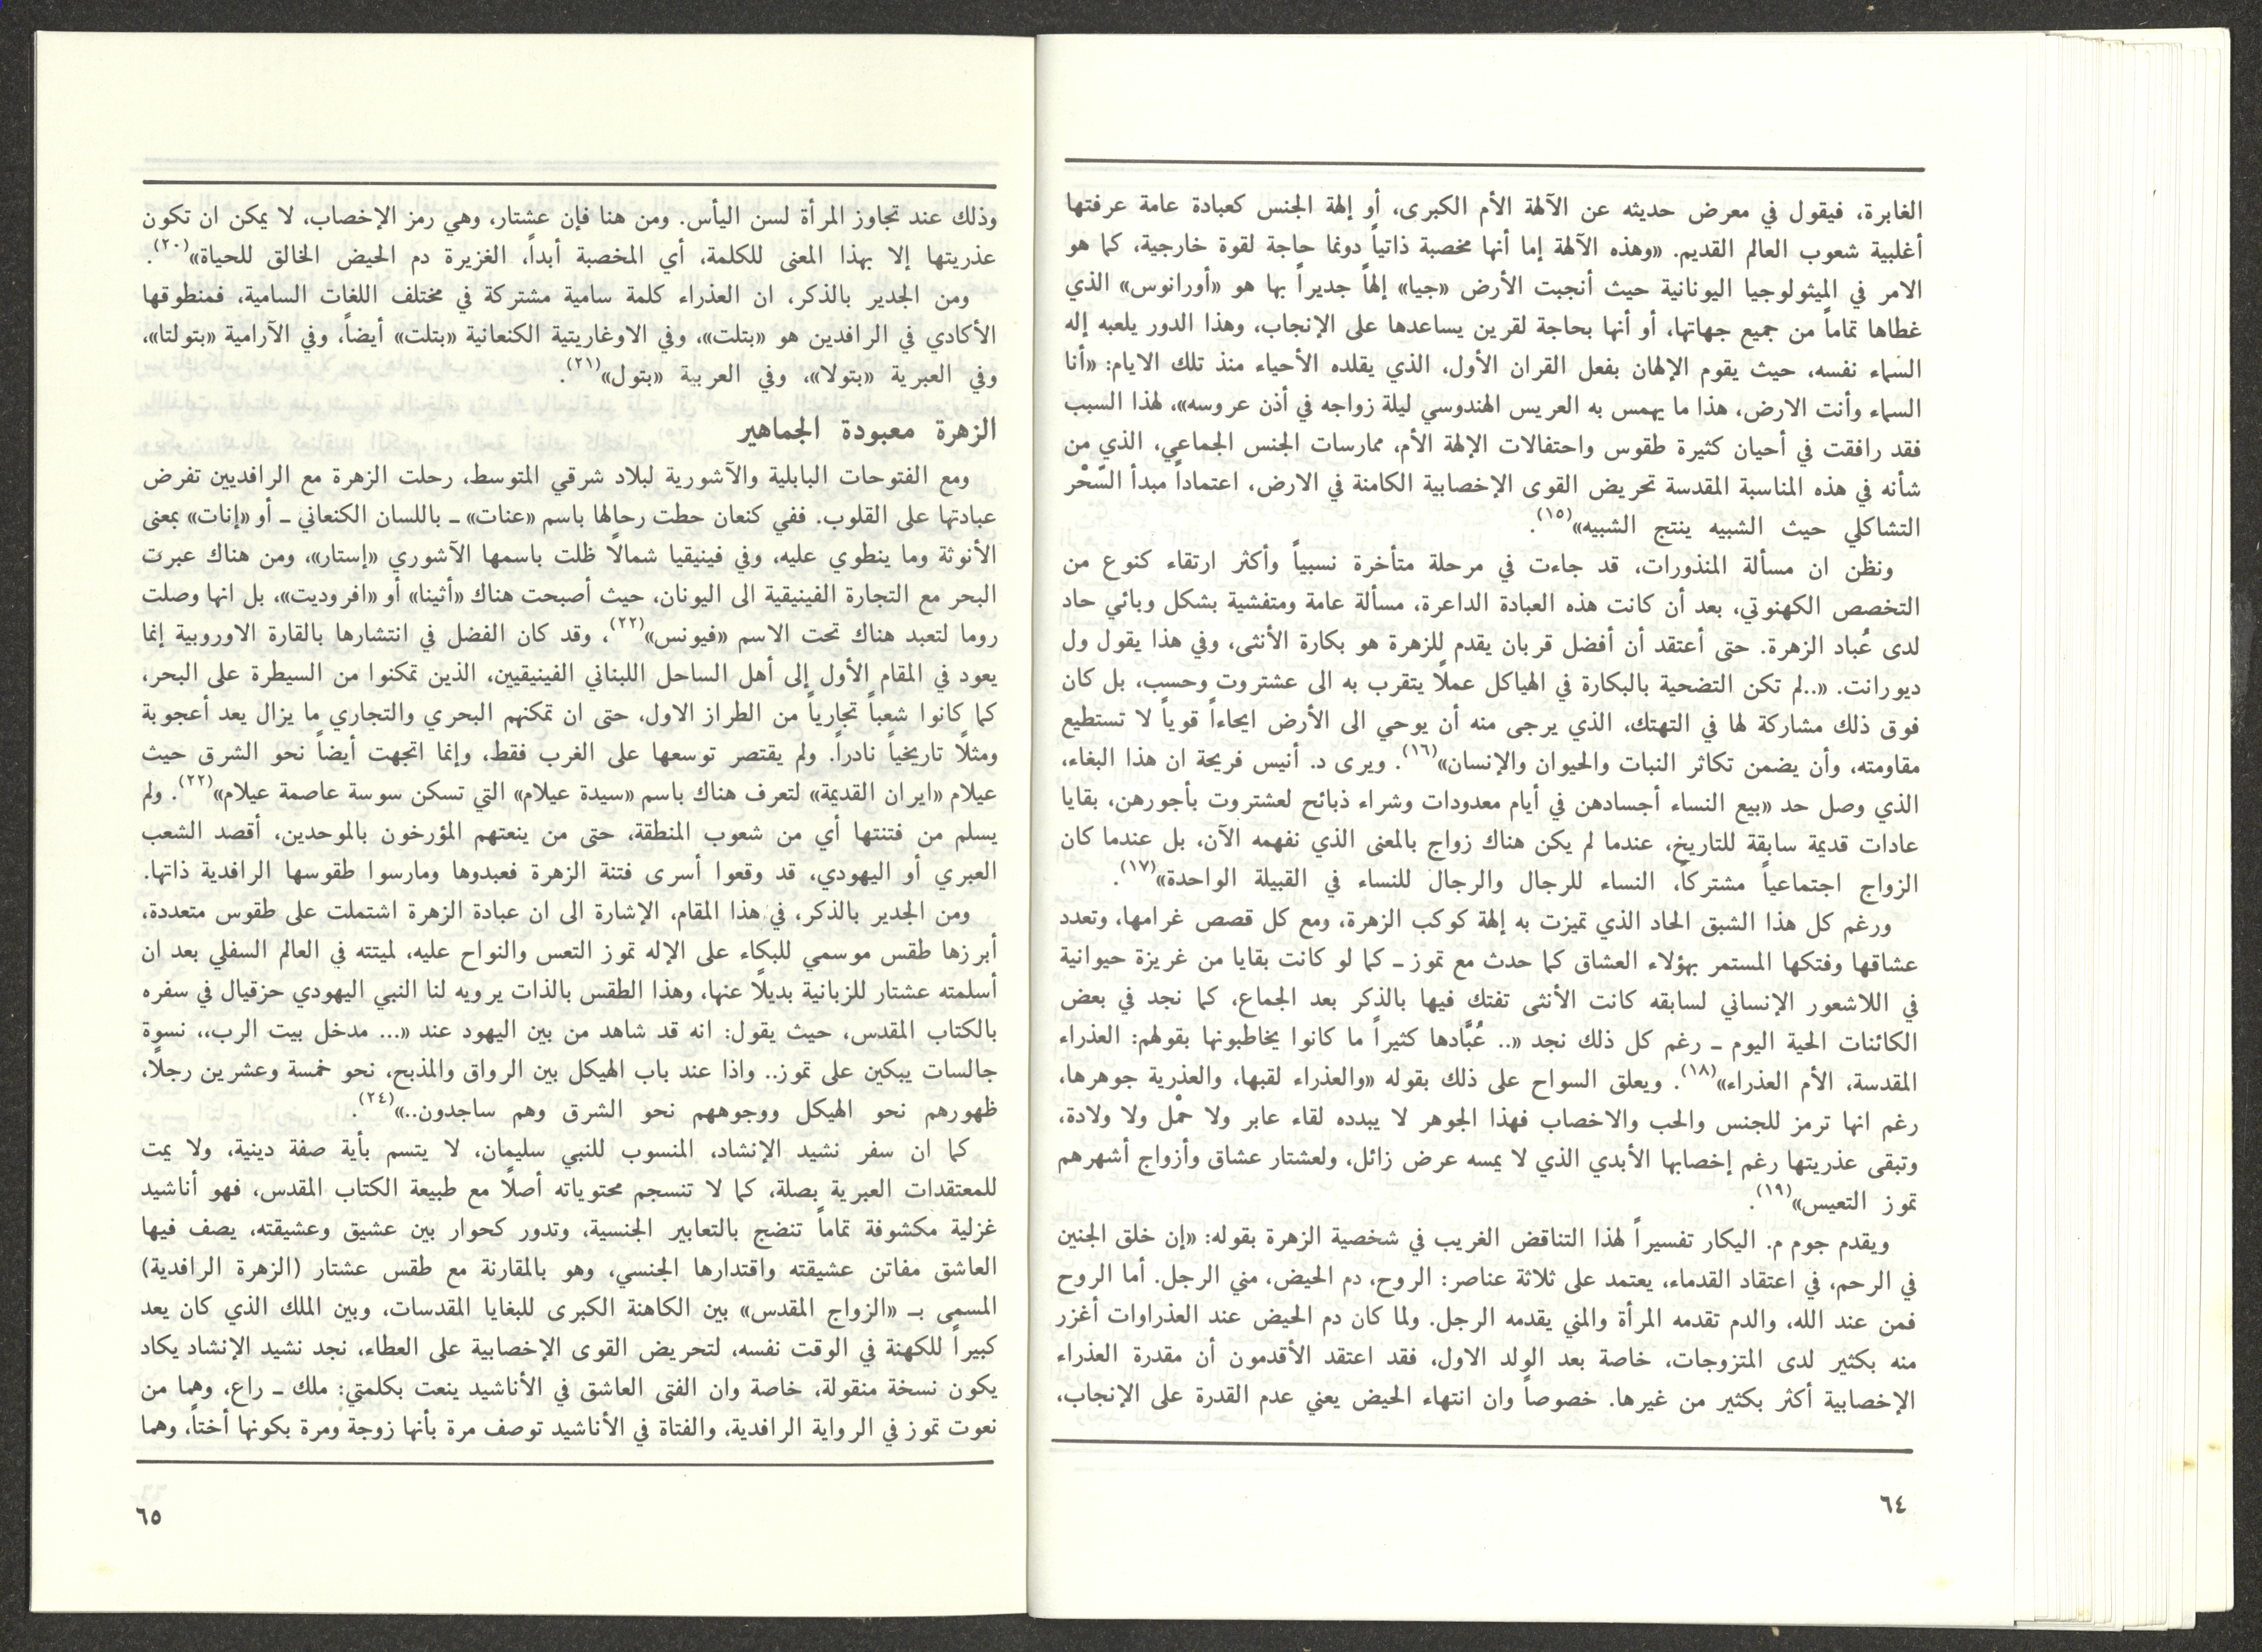 الغابرة، فيقول في معرض حديثه عن الآلهة الأم الكبرى، أو إلهة الجنس كعبادة عامة عرفتها
أغلبية شعوب العالم القديم. «وهذه الآلهة إما أنها مخصبة ذاتياً دونما حاجة لقوة خارجية، كما هو
الامر في الميثولوجيا اليونانية حيث أنجبت الأرض «جيا» إلهاً جديراً بها هو «أورانوس» الذي
غطاها تماماً من جميع جهاتها، أو أنها بحاجة لقرين يساعدها على الإنجاب، وهذا الدور يلعبه إله
السماء نفسه، حيث يقوم الإلهان بفعل القران الأول، الذي يقلده الأحياء منذ تلك الايام: «أنا
السماء وأنت الارض، هذا ما يهمس به العريس الهندوسي ليلة زواجه في أذن عروسه»، لهذا السبب
فقد رافقت في أحيان كثيرة طقوس واحتفالات الإلهة الأم، ممارسات الجنس الجماعي، الذي من
شأنه في هذه المناسبة المقدسة تحريض القوى الإخصابية الكامنة في الارض، اعتماداً مبدأ السّحْر
التشاكلي حيث الشبيه ينتج الشبيه»(١٥).
ونظن ان مسألة المنذورات، قد جاءت في مرحلة متأخرة نسبياً وأكثر ارتقاء كنوع من
التخصص الكهنوتي، بعد أن كانت هذه العبادة الداعرة، مسألة عامة ومتفشية بشكل وبائي حاد
لدى عُباد الزهرة. حتى أعتقد أن أفضل قربان يقدم للزهرة هو بكارة الأنثى، وفي هذا يقول ول
ديورانت. «..لم تكن التضحية بالبكارة في الهياكل عملاً يتقرب به الى عشتروت وحسب، بل كان
فوق ذلك مشاركة لها في التهتك، الذي يرجى منه أن يوحي الى الأرض ايحاءاً قوياً لا تستطيع
مقاومته، وأن يضمن تكاثر النبات والحيوان والإنسان»(١٦). ويرى د. أنيس فريحة ان هذا البغاء،
الذي وصل حد «بيع النساء أجسادهن في أيام معدودات وشراء ذبائح لعشتروت بأجورهن، بقايا
عادات قديمة سابقة للتاريخ، عندما لم يكن هناك زواج بالمعنى الذي نفهمه الآن، بل عندما كان
الزواج اجتماعياً مشتركاً، النساء للرجال والرجال للنساء في القبيلة الواحدة»(١٧).
ورغم كل هذا الشبق الحاد الذي تميزت به إلهة كوكب الزهرة، ومع كل قصص غرامها، وتعدد
عشاقها وفتكها المستمر بهؤلاء العشاق كما حدث مع تموز ـ كما لو كانت بقايا من غريزة حيوانية
في اللاشعور الإنساني لسابقه كانت الأنثى تفتك فيها بالذكر بعد الجماع، كما نجد في بعض
الكائنات الحية اليوم ـ رغم كل ذلك نجد «.. عُبَّادها كثيراً ما كانوا يخاطبونها بقولهم: العذراء
المقدسة، الأم العذراء»(١٨). ويعلق السواح على ذلك بقوله «والعذراء لقبها، والعذرية جوهرها،
رغم انها ترمز للجنس والحب والاخصاب فهذا الجوهر لا يبدده لقاء عابر ولا حمْل ولا ولادة،
وتبقى عذريتها رغم إخصابها الأبدي الذي لا يمسه عرض زائل، ولعشتار عشاق وأزواج أشهرهم
تموز التعيس»(١٩).
ويقدم جوم م. اليكار تفسيراً لهذا التناقض الغريب في شخصية الزهرة بقوله: «إن خلق الجنين
في الرحم، في اعتقاد القدماء، يعتمد على ثلاثة عناصر: الروح، دم الحيض، مني الرجل. أما الروح
فمن عند الله، والدم تقدمه المرأة والمني يقدمه الرجل. ولما كان دم الحيض عند العذراوات أغزر
منه بكثير لدى المتزوجات، خاصة بعد الولد الاول، فقد اعتقد الأقدمون أن مقدرة العذراء
الإخصابية أكثر بكثير من غيرها. خصوصاً وان انتهاء الحيض يعني عدم القدرة على الإنجاب،
٦٤
وذلك عند تجاوز المرأة لسن اليأس. ومن هنا فإن عشتار، وهي رمز الإخصاب، لا يمكن ان تكون
عذريتها إلا بهذا المعنى للكلمة، أي المخصبة أبداً، الغزيرة دم الحيض الخالق للحياة»(٢٠).
ومن الجدير بالذكر، ان العذراء كلمة سامية مشتركة في مختلف اللغات السامية، فمنطوقها
الأكادي في الرافدين هو «بتلت»، وفي الاوغاريتية الكنعانية «بتلت» أيضاً، وفي الآرامية «بتولتا»،
وفي العبرية «بتولا»، وفي العربية «بتول»(٢١).
الزهرة معبودة الجماهير
ومع الفتوحات البابلية والآشورية لبلاد شرقي المتوسط، رحلت الزهرة مع الرافديين تفرض
عبادتها على القلوب. ففي كنعان حطت رحالها باسم «عنات» ـ باللسان الكنعاني ـ أو «إنات» بمعنى
الأنوثة وما ينطوي عليه، وفي فينيقيا شمالاً ظلت باسمها الآشوري «إستار»، ومن هناك عبرت
البحر مع التجارة الفينيقية الى اليونان، حيث أصبحت هناك «أثينا» أو «افروديت»، بل انها وصلت
روما لتعبد هناك تحت الاسم «فيونس»(٢٢)، وقد كان الفضل في انتشارها بالقارة الاوروبية إنما
يعود في المقام الأول إلى أهل الساحل اللبناني الفينيقيين، الذين تمكنوا من السيطرة على البحر،
كما كانوا شعباً تجارياً من الطراز الاول، حتى ان تمكنهم البحري والتجاري ما يزال يعد أعجوبة
ومثلاً تاريخياً نادراً. ولم يقتصر توسعها على الغرب فقط، وإنما اتجهت أيضاً نحو الشرق حيث
عيلام «ايران القديمة» لتعرف هناك باسم «سيدة عيلام» التي تسكن سوسة عاصمة عيلام»(٢٢). ولم
يسلم من فتنتها أي من شعوب المنطقة، حتى من ينعتهم المؤرخون بالموحدين، أقصد الشعب
العبري أو اليهودي، قد وقعوا أسرى فتنة الزهرة فعبدوها ومارسوا طقوسها الرافدية ذاتها.
ومن الجدير بالذكر، في هذا المقام، الإشارة الى ان عبادة الزهرة اشتملت على طقوس متعددة،
أبرزها طقس موسمي للبكاء على الإله تموز التعس والنواح عليه، لميتته في العالم السفلي بعد ان
أسلمته عشتار للزبانية بديلاً عنها، وهذا الطقس بالذات يرويه لنا النبي اليهودي حزقيال في سفره
بالكتاب المقدس، حيث يقول: انه قد شاهد من بين اليهود عند «... مدخل بيت الرب،، نسوة
جالسات يبكين على تموز.. واذا عند باب الهيكل بين الرواق والمذبح، نحو خمسة وعشرين رجلاً،
ظهورهم نحو الهيكل ووجوههم نحو الشرق وهم ساجدون..»(٢٤).
كما ان سفر نشيد الإنشاد، المنسوب للنبي سليمان، لا يتسم بأية صفة دينية، ولا يمت
للمعتقدات العبرية بصلة، كما لا تنسجم محتوياته أصلاً مع طبيعة الكتاب المقدس، فهو أناشيد
غزلية مكشوفة تماماً تنضج بالتعابير الجنسية، وتدور كحوار بين عشيق وعشيقته، يصف فيها
العاشق مفاتن عشيقته واقتدارها الجنسي، وهو بالمقارنة مع طقس عشتار (الزهرة الرافدية)
المسمى بـ «الزواج المقدس» بين الكاهنة الكبرى للبغايا المقدسات، وبين الملك الذي كان يعد
كبيراً للكهنة في الوقت نفسه، لتحريض القوى الإخصابية على العطاء، نجد نشيد الإنشاد يكاد
يكون نسخة منقولة، خاصة وان الفتى العاشق في الأناشيد ينعت بكلمتي: ملك ـ راع، وهما من
نعوت تموز في الرواية الرافدية، والفتاة في الأناشيد توصف مرة بأنها زوجة ومرة بكونها أختاً، وهما
٦٥